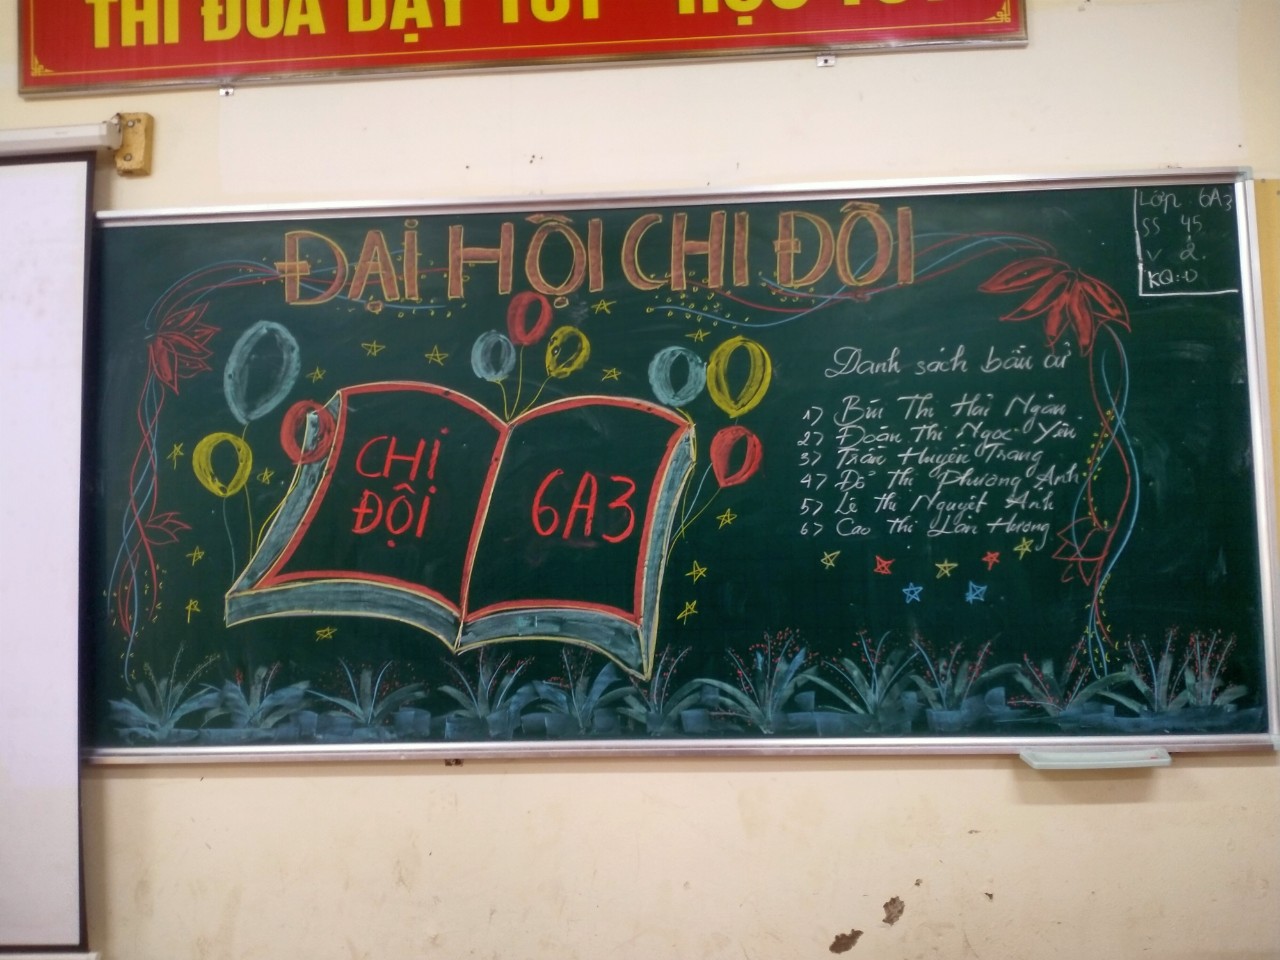 THI ĐUA DẠY TỐT - HỌC TỐT
ĐẠI HỘI CHI ĐỘI
Lớp: 6A3
SS 45
V 2.
KQ: 0
CHI
ĐỘI
6A3
Danh sách bầu cử
1> Bùi Thị Hải Ngân
2> Đoàn Thị Ngọc Yến
3> Trần Huyền Trang
4> Đỗ Thị Phương Anh
5> Lê Thị Nguyệt Ánh
6> Cao Thị Lan Hương